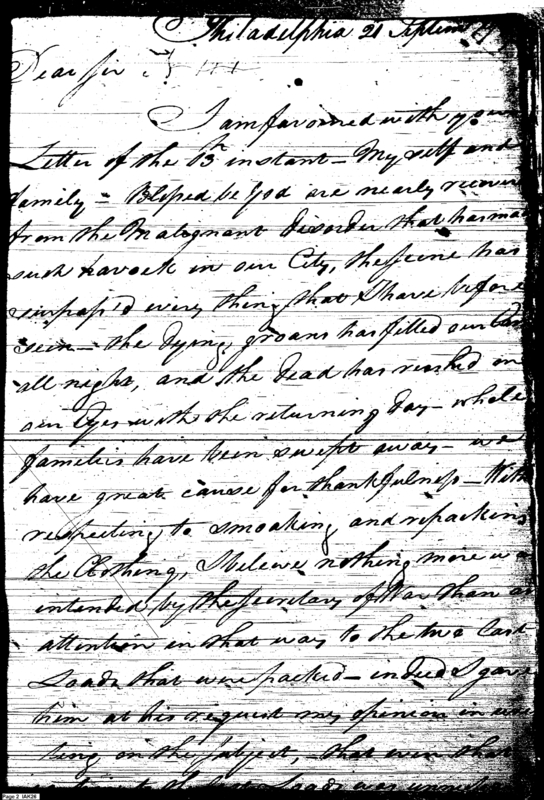 Philadelphia 21 Septem
Dear Sir
I am favored with your
Letter of the 13th instant – My self and
family – Blessed be God are nearly recove
from the Malignant disorder that has ma
such havock in our City, the scene has
surpass'd every thing that I have before
seen – the dying groans has filled our Ears
all night, and the Dead has rushed on
our Eyes with the returning day – whole
families have been swept away – we
have great cause for thankfulness – With
respecting to smoaking and repacking
the Clothing, I beleive nothing more was
intended by the Secretary of War than an
attention in that way to the two last
Loads that were packed – indeed I gave
him at his request my opinion in wri
ting on the subject, – that even that
Loads was
Page 2 IAK26